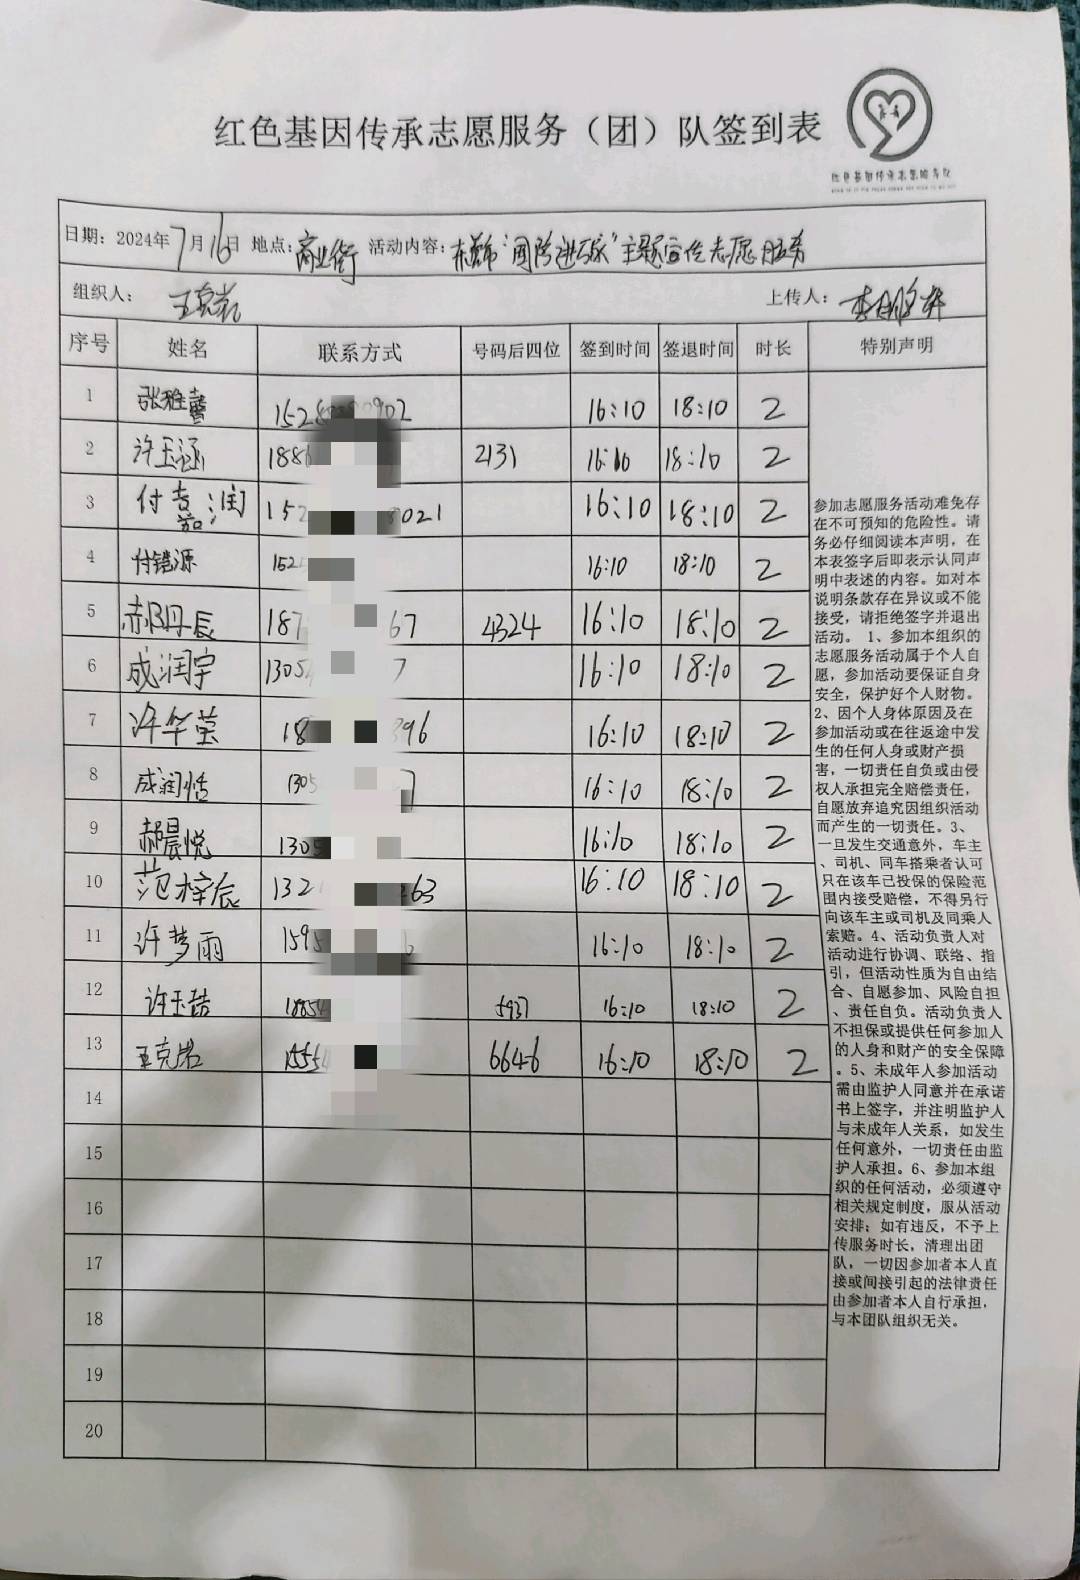 红色基因传承志愿服务（团）队签到表
红色基因传承志愿服务队
日期：2024年7月16日 地点：商业街 活动内容："国防进万家"主题宣传志愿服务
组织人：王克岩 上传人：
序号 姓名 联系方式 号码后四位 签到时间 签退时间 时长 特别声明
1 张雅馨 16:10 18:10 2
2 许玉涵 1886 2131 16:10 18:10 2
3 付嘉润 152 8021 16:10 18:10 2
4 付锴源 152 16:10 18:10 2
5 郝丹辰 187 67 4324 16:10 18:10 2
6 成润宇 1305 7 16:10 18:10 2
7 许华莹 18 396 16:10 18:10 2
8 成润恬 1305 7 16:10 18:10 2
9 郝晨悦 1305 16:10 18:10 2
10 范梓辰 132 63 16:10 18:10 2
11 许梦雨 1595 16:10 18:10 2
12 许玉喆 18854 5937 16:10 18:10 2
13 王克岩 1555 6646 16:10 18:10 2
14
15
16
17
18
19
20
参加志愿服务活动难免存
在不可预知的危险性。请
务必仔细阅读本声明，在
本表签字后即表示认同声
明中表述的内容。如对本
说明条款存在异议或不能
接受，请拒绝签字并退出
活动。 1、参加本组织的
志愿服务活动属于个人自
愿，参加活动要保证自身
安全，保护好个人财物。
2、因个人身体原因及在
参加活动或在往返途中发
生的任何人身或财产损
害，一切责任自负或由侵
权人承担完全赔偿责任，
自愿放弃追究因组织活动
而产生的一切责任。3、
一旦发生交通意外，车主
、司机、同车搭乘者认可
只在该车已投保的保险范
围内接受赔偿，不得另行
向该车主或司机及同乘人
索赔。4、活动负责人对
活动进行协调、联络、指
引，但活动性质为自由结
合、自愿参加、风险自担
、责任自负。活动负责人
不担保或提供任何参加人
的人身和财产的安全保障
。5、未成年人参加活动
需由监护人同意并在承诺
书上签字，并注明监护人
与未成年人关系，如发生
任何意外，一切责任由监
护人承担。6、参加本组
织的任何活动，必须遵守
相关规定制度，服从活动
安排；如有违反，不予上
传服务时长，清理出团
队，一切因参加者本人直
接或间接引起的法律责任
由参加者本人自行承担，
与本团队组织无关。